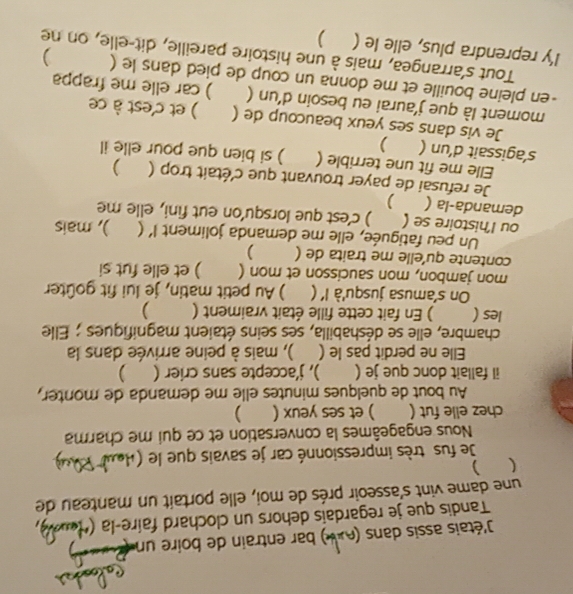 Calvados
J'étais assis dans (        ) bar entrain de boire un (        )
Tandis que je regardais dehors un clochard faire-la (        ),
une dame vint s'asseoir prés de moi, elle portait un manteau de
(        )
Je fus très impressionné car je savais que le (        )
Nous engageâmes la conversation et ce qui me charma
chez elle fut (        ) et ses yeux (        )
Au bout de quelques minutes elle me demanda de monter,
il fallait donc que je (        ), j'accepte sans crier (        )
Elle ne perdit pas le (        ), mais à peine arrivée dans la
chambre, elle se déshabilla, ses seins étaient magnifiques ; Elle
les (        ) En fait cette fille était vraiment (        )
On s'amusa jusqu'à l' (        ) Au petit matin, je lui fit goûter
mon jambon, mon saucisson et mon (        ) et elle fut si
contente qu'elle me traita de (        )
Un peu fatiguée, elle me demanda joliment l' (        ), mais
ou l'histoire se (        ) c'est que lorsqu'on eut fini, elle me
demanda-la (        )
Je refusai de payer trouvant que c'était trop (        )
Elle me fit une terrible (        ) si bien que pour elle il
s'agissait d'un (        )
Je vis dans ses yeux beaucoup de (        ) et c'est à ce
moment là que j'aurai eu besoin d'un (        ) car elle me frappa
-en pleine bouille et me donna un coup de pied dans le (        )
Tout s'arrangea, mais à une histoire pareille, dit-elle, on ne
l'y reprendra plus, elle le (        )